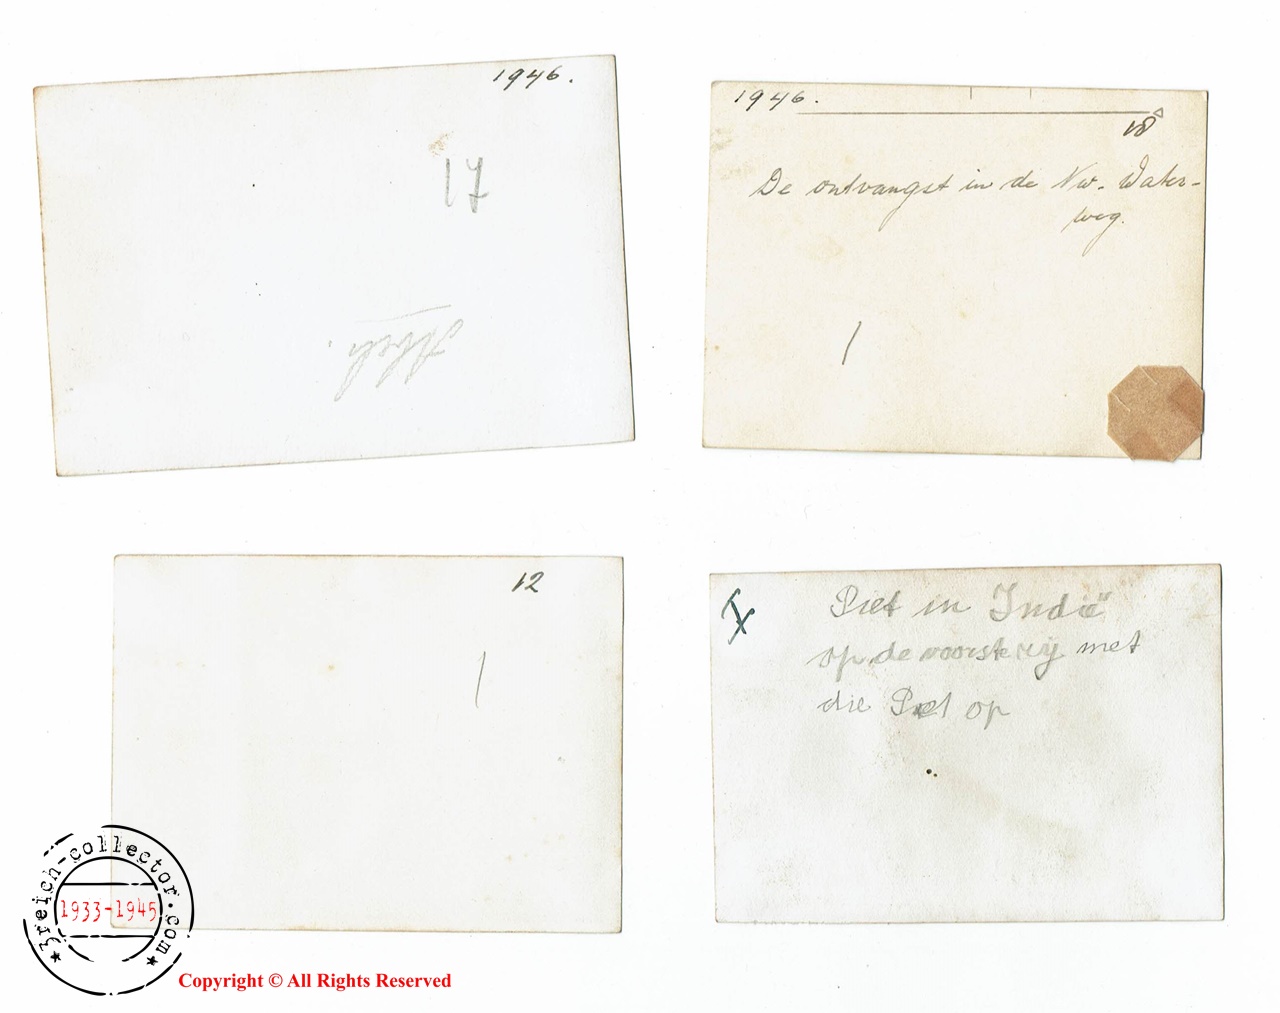 1946.
17
1946.
18
De ontvangst in de Nw. Water-
weg.
12
Piet in Indië
op de voorste rij met
die Piet op
3reich-collector.com
1933-1945
Copyright © All Rights Reserved